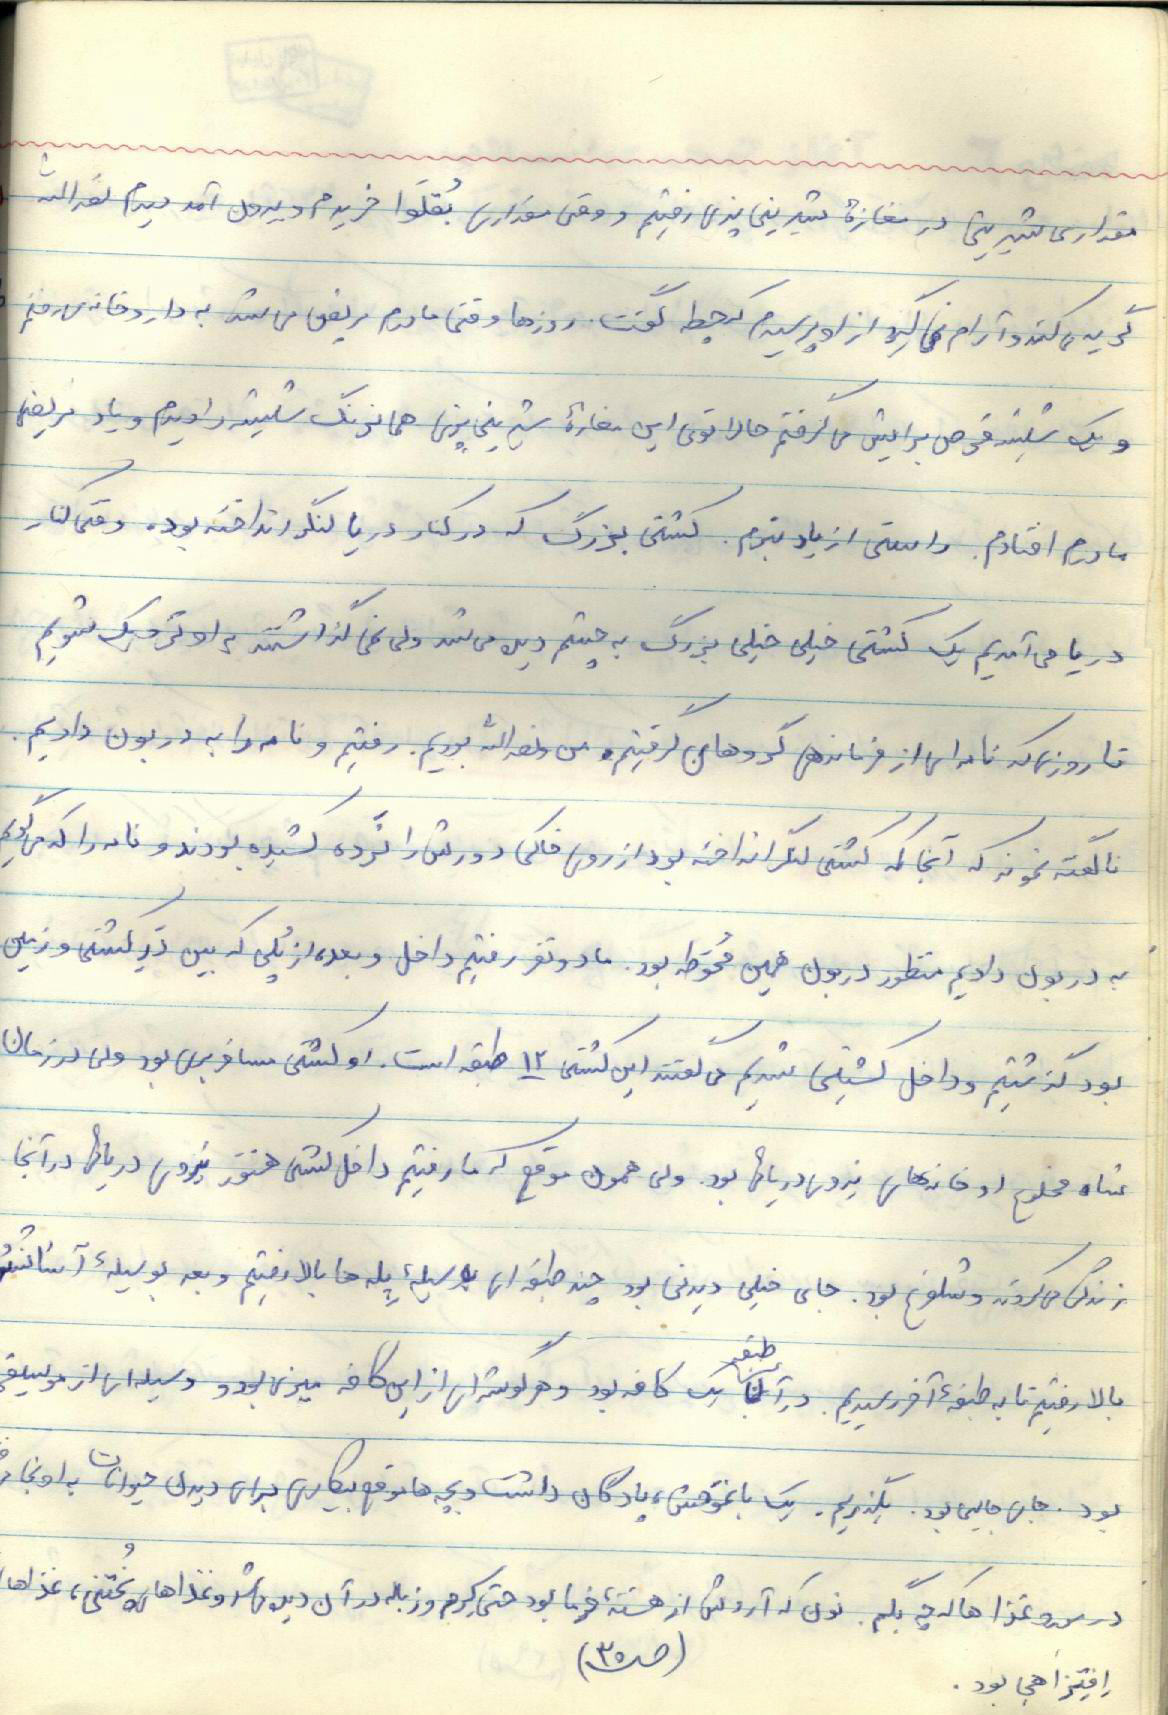 مقداری شیرینی در مغازهٔ شیرینی پزی رفتیم و وقتی مقداری بُقلَوا خریدم و بیرون آمد دیدم نصرالله
گریه می کند و آرام نمی گیرد از او پرسیدم که چطه گفت. روزها وقتی مادرم مریض می شد به داروخانه می رفتم
و یک شیشه قرص برایش می گرفتم حالا توی این مغازهٔ شیرینی پزی همانرنگ شیشه را دیدم و یاد مریضی
مادرم افتادم. راستی از یاد نبرم. کشتی بزرگ که در کنار دریا لنگر انداخته بود. وقتی کنار
دریا می آمدیم یک کشتی خیلی خیلی بزرگ به چشم دیده می شد ولی نمی گذاشتند به او نزدیک شویم
تا روزی که نامه ای از فرماندهی گروهان گرفتیم. من و نصرالله بودیم. رفتیم و نامه را به دربون دادیم.
ناگفته نمونه که آنجا که کشتی لنگر انداخته بود از روی خاکی دورش را نرده کشیده بودند و نامه را که می گویم
به دربون دادیم منظور دربون همین مُحَوَطه بود. ما دو نفر رفتیم داخل و بعد، از پُلی که بین دَرِ کشتی و زمین
بود گذشتیم و داخل کشتی شدیم می گفتند این کشتی ۱۲ طبقه است. او کشتی مسافربری بود ولی در زمان
شاه مخلوع او خانه های نیروی دریائی بود. ولی همون موقع که ما رفتیم داخل کشتی هنوز نیروی دریائی در آنجا
زندگی می کردند و شلوغ بود. جای خیلی دیدنی بود چند طبقه ای بوسیلهٔ پله ها بالا رفتیم و بعد بوسیلهٔ آسانسُور
بالا رفتیم تا به طبقهٔ آخر رسیدیم. در آن طبقه یک کافه بود و هر گوشه ای از این کافه میزی بود و وسیله ای از موسیقی
بود. جای جالبی بود. بگذریم. یک باغ وحش، پادگان داشت و بچه ها موقع بیکاری برای دیدن حیوانات به اونجا
در سرو غذاها که چه بگم. نون که آردش از هستهٔ خرما بود حتی کرم و زباله در آن دیده می شد و غذاهای پُختنی، غذاهای
اِفتِزاحی بود.
(صـ ۳۰)